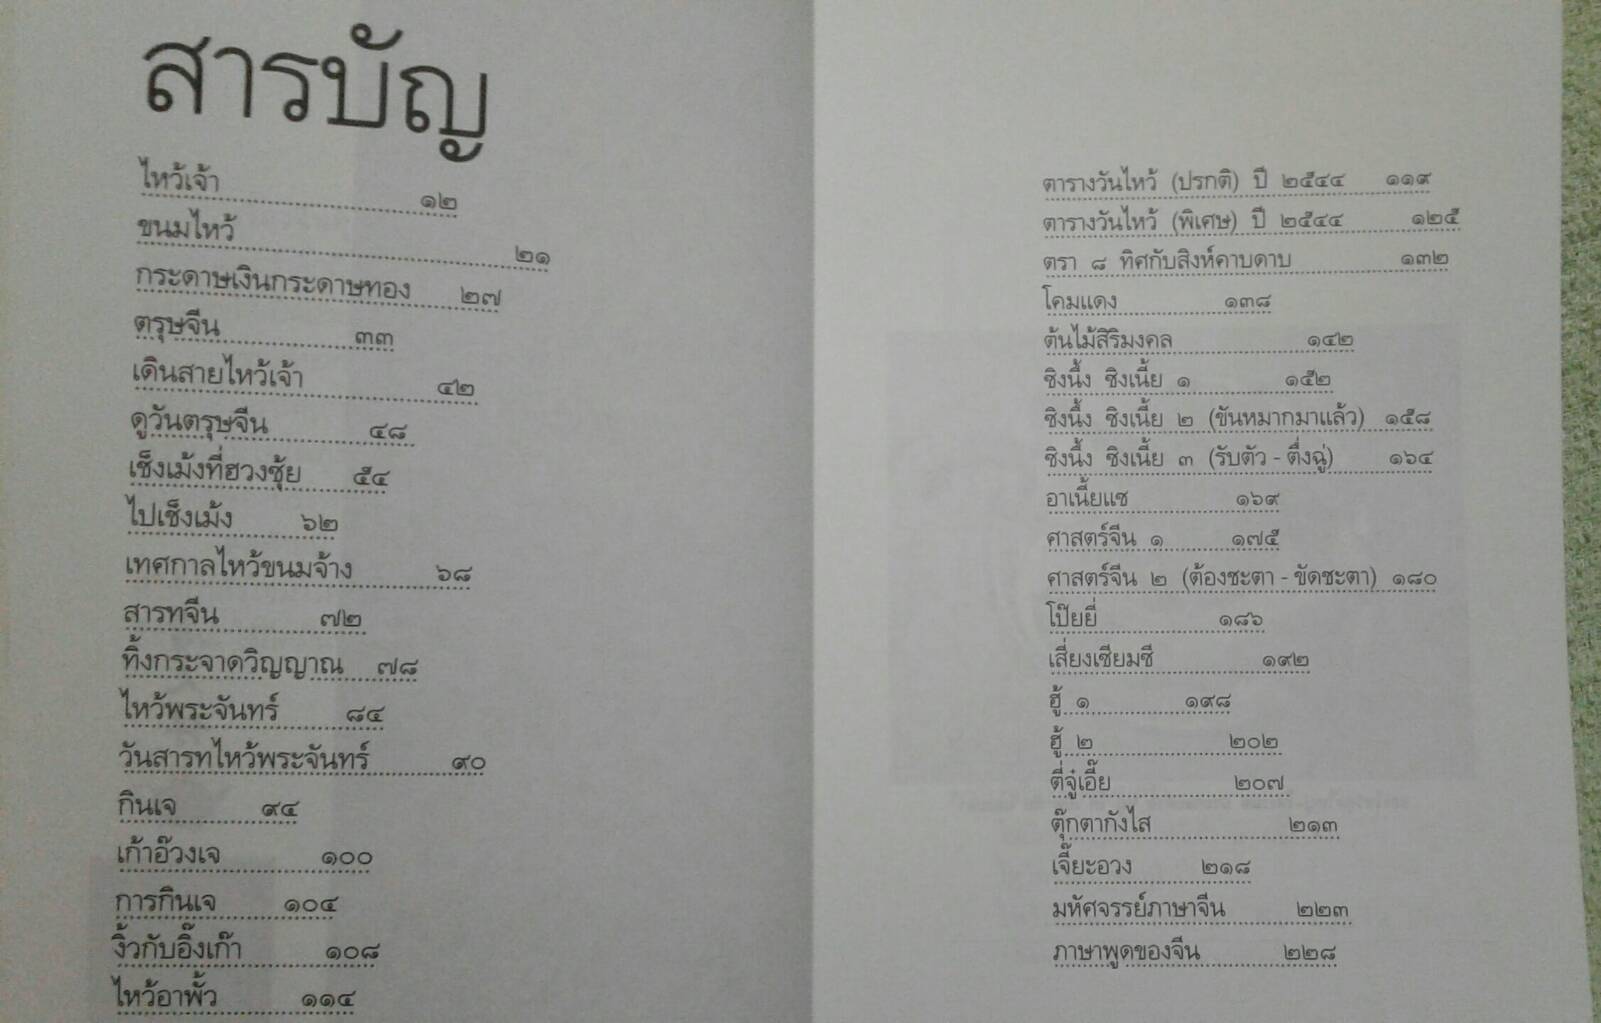 สารบัญ
ไหว้เจ้า ๑๒
ขนมไหว้ ๒๑
กระดาษเงินกระดาษทอง ๒๗
ตรุษจีน ๓๓
เดินสายไหว้เจ้า ๔๒
ดูวันตรุษจีน ๔๘
เช็งเม้งที่ฮวงซุ้ย ๕๔
ไปเช็งเม้ง ๖๒
เทศกาลไหว้ขนมจ้าง ๖๘
สารทจีน ๗๒
ทิ้งกระจาดวิญญาณ ๗๘
ไหว้พระจันทร์ ๘๔
วันสารทไหว้พระจันทร์ ๙๐
กินเจ ๙๔
เก้าอ๊วงเจ ๑๐๐
การกินเจ ๑๐๔
งิ้วกับอิ๊งเก๊า ๑๐๘
ไหว้อาพั้ว ๑๑๔
ตารางวันไหว้ (ปรกติ) ปี ๒๕๔๔ ๑๑๙
ตารางวันไหว้ (พิเศษ) ปี ๒๕๔๔ ๑๒๕
ตรา ๘ ทิศกับสิงห์คาบดาบ ๑๓๒
โคมแดง ๑๓๘
ต้นไม้สิริมงคล ๑๔๒
ซิงนี้ง ซิงเนี้ย ๑ ๑๕๒
ซิงนี้ง ซิงเนี้ย ๒ (ขันหมากมาแล้ว) ๑๕๘
ซิงนี้ง ซิงเนี้ย ๓ (รับตัว - ตึ่งฉู่) ๑๖๔
อาเนี้ยแซ ๑๖๙
ศาสตร์จีน ๑ ๑๗๕
ศาสตร์จีน ๒ (ต้องชะตา - ขัดชะตา) ๑๘๐
โป๊ยยี่ ๑๘๖
เสี่ยงเซียมซี ๑๙๒
ฮู้ ๑ ๑๙๘
ฮู้ ๒ ๒๐๒
ตี่จู่เอี๊ย ๒๐๗
ตุ๊กตากังไส ๒๑๓
เจี๊ยะอวง ๒๑๘
มหัศจรรย์ภาษาจีน ๒๒๓
ภาษาพูดของจีน ๒๒๘